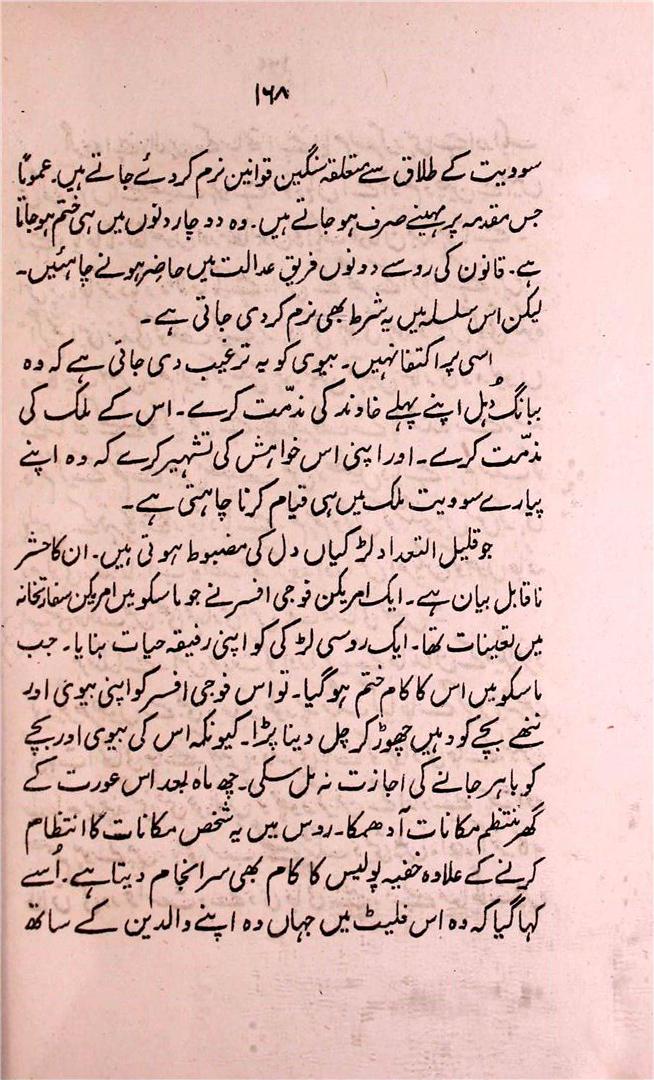 ۱۶۸
سوویت کے طلاق سے متعلقہ سنگین قوانین نرم کردئے جاتے ہیں۔ عموماً
جس مقدمہ پر مہینے صرف ہو جاتے ہیں۔ وہ دو چار دنوں میں ہی ختم ہو جاتا
ہے۔ قانون کی رو سے دونوں فریق عدالت میں حاضر ہونے چاہئیں۔
لیکن اس سلسلہ میں یہ شرط بھی نرم کر دی جاتی ہے۔
اسی پر اکتفا نہیں۔ بیوی کو یہ ترغیب دی جاتی ہے کہ وہ
ببانگ دُہل اپنے پہلے خاوند کی مذمّت کرے۔ اس کے ملک کی
مذمّت کرے۔ اور اپنی اس خواہش کی تشہیر کرے کہ وہ اپنے
پیارے سوویت ملک میں ہی قیام کرنا چاہتی ہے۔
جو قلیل التعداد لڑکیاں دل کی مضبوط ہوتی ہیں۔ ان کا حشر
ناقابل بیان ہے۔ ایک امریکن فوجی افسر نے جو ماسکو میں امریکن سفارتخانہ
میں تعینات تھا۔ ایک روسی لڑکی کو اپنی رفیقہ حیات بنایا۔ جب
ماسکو میں اس کا کام ختم ہو گیا۔ تو اس فوجی افسر کو اپنی بیوی اور
ننھے بچے کو وہیں چھوڑ کر چل دینا پڑا۔ کیونکہ اس کی بیوی اور بچے
کو باہر جانے کی اجازت نہ مل سکی۔ چھ ماہ بعد اس عورت کے
گھر منتظم مکانات آ دھمکا۔ روس میں یہ شخص مکانات کا انتظام
کرنے کے علاوہ خفیہ پولیس کا کام بھی سرانجام دیتا ہے۔ اُسے
کہا گیا کہ وہ اس فلیٹ میں جہاں وہ اپنے والدین کے ساتھ